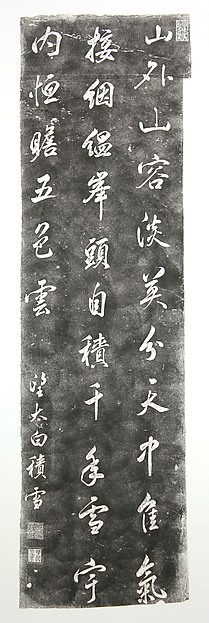 山外山容淡莫分天中佳氣
接絪縕峯頭自積千年雪宇
内恒瞻五色雲
望太白積雪